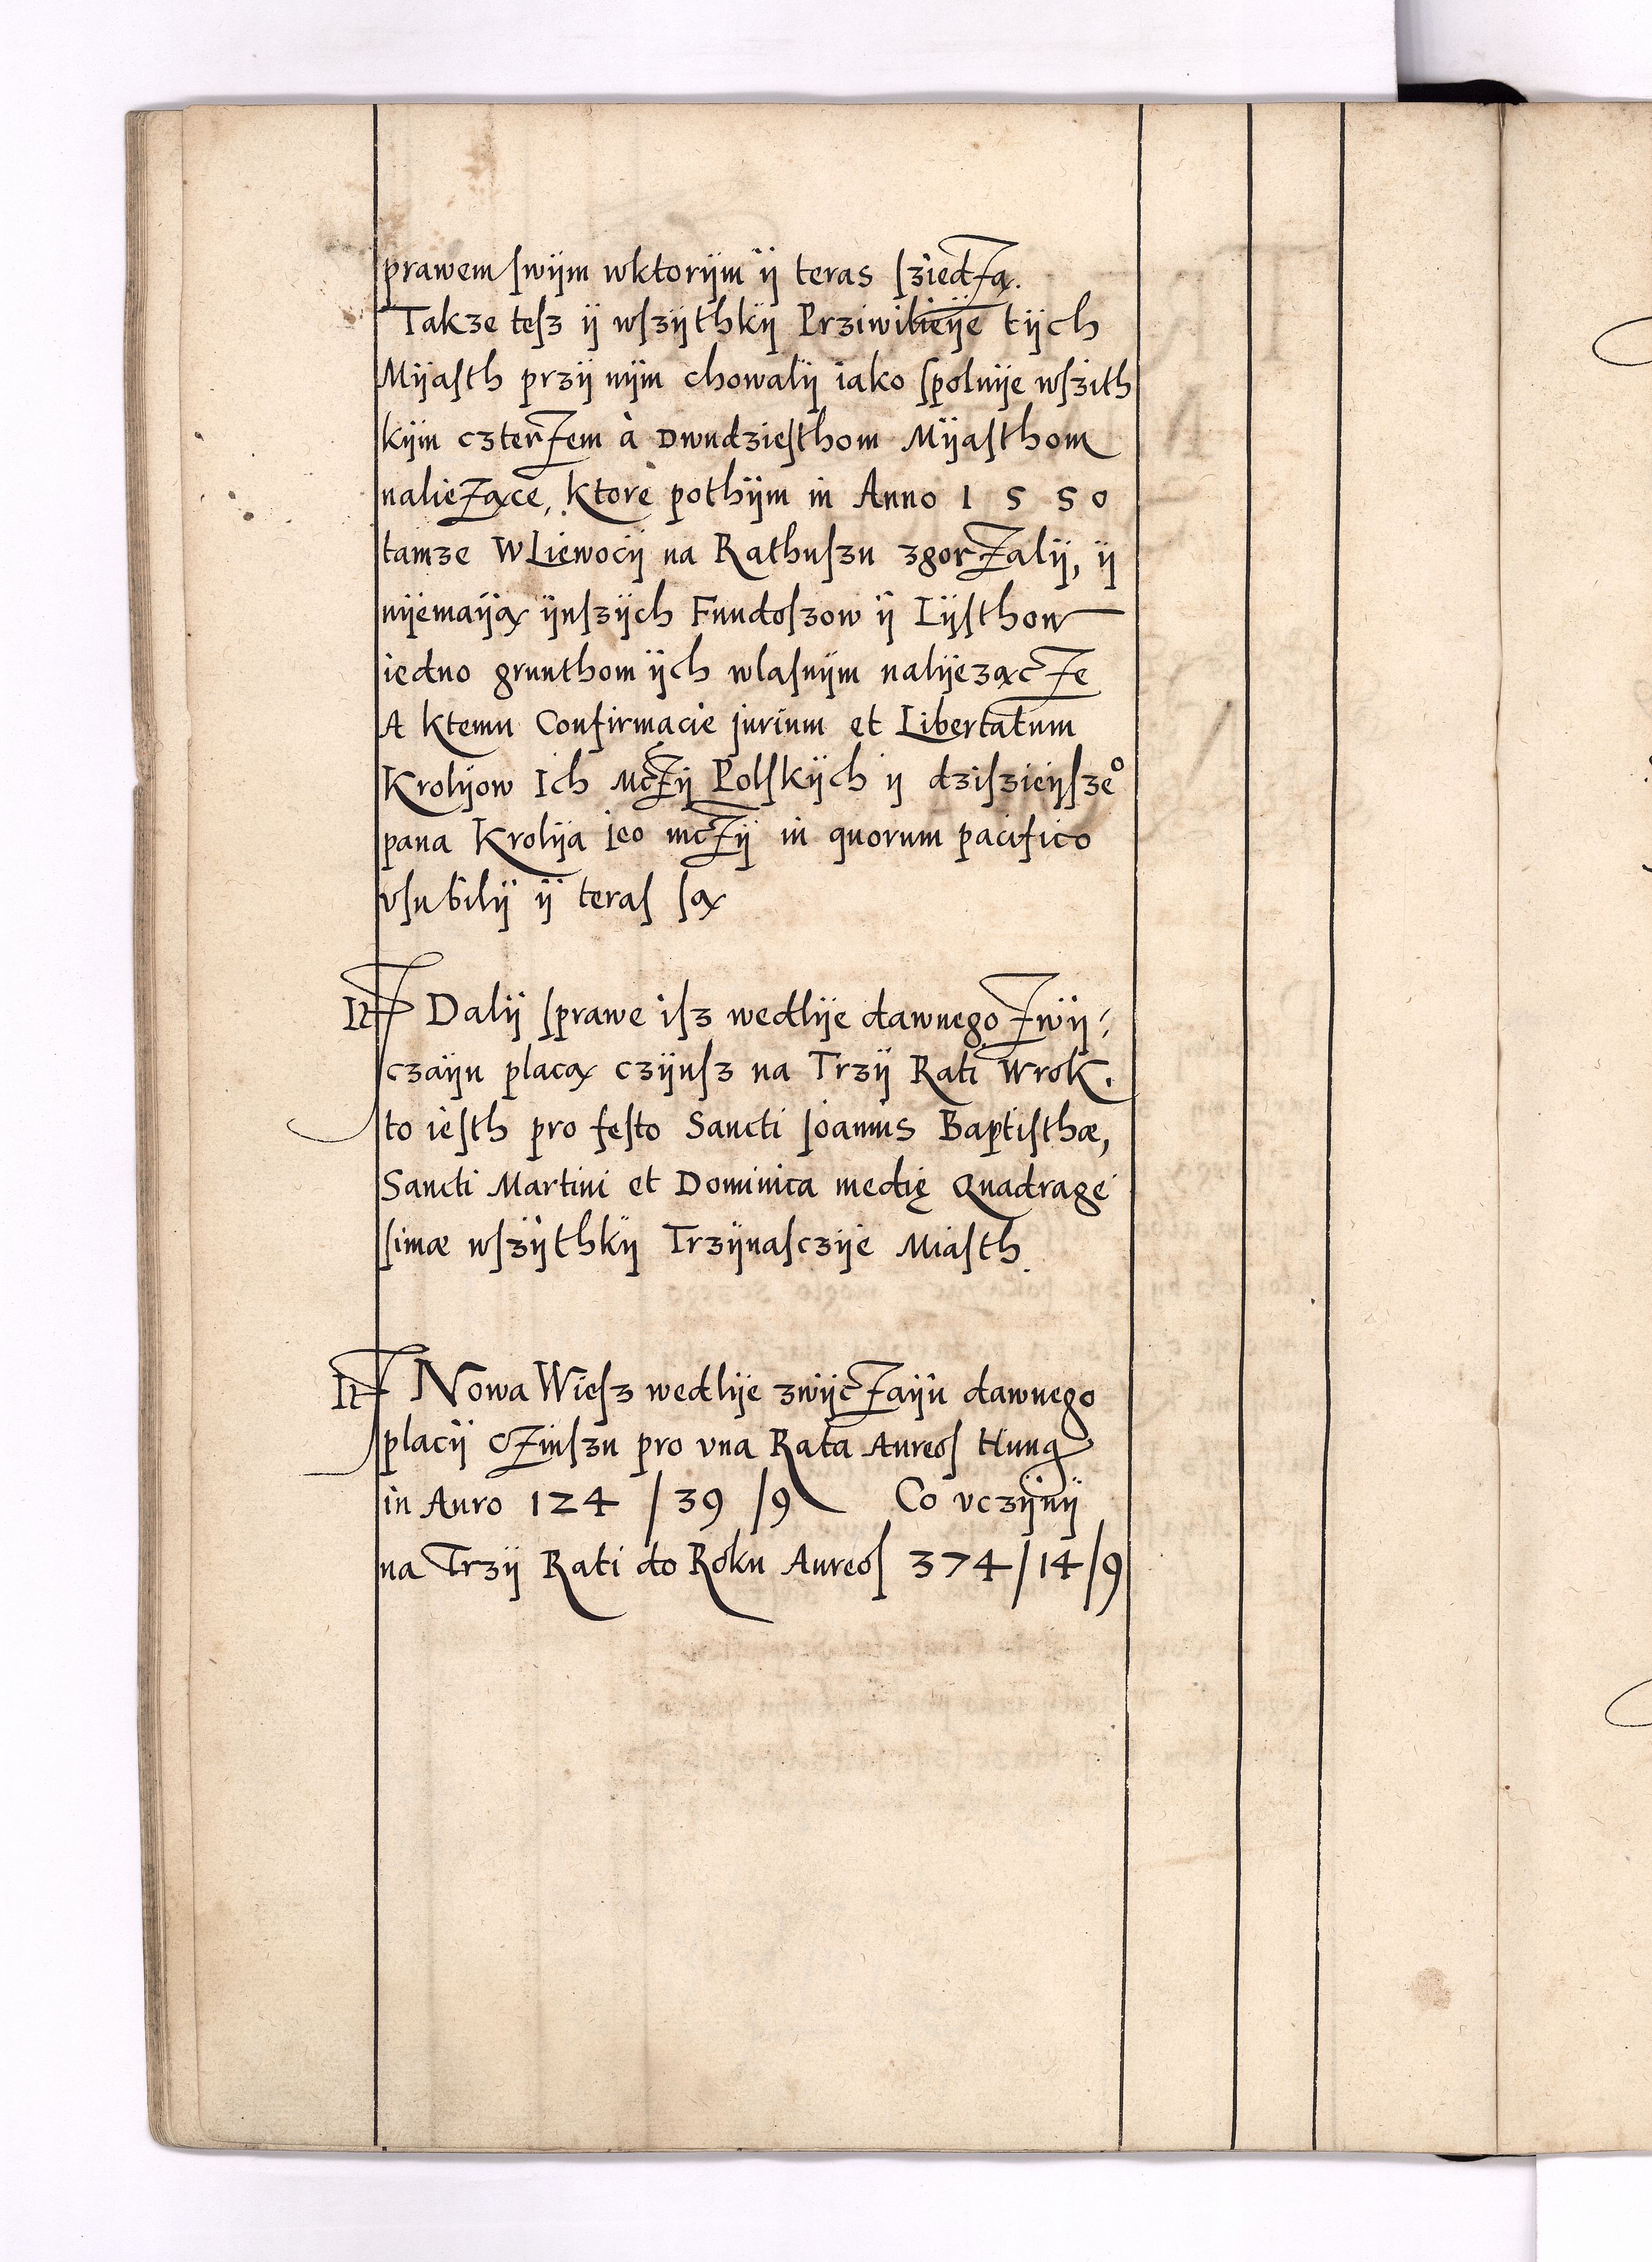 prawem swÿm wktorÿm ÿ teras sziedzą.
Takze tesz ÿ wszÿthkÿ Prziwilieÿe tÿch
Mÿasth przÿ nÿm chowalÿ iako spolnÿe wszith
kÿm czterzem à Dwudziesthom Mÿasthom
naliezące, ktore pothÿm in Anno 1 5 5 0
tamze WLiewocÿ na Rathuszu zgorzalÿ, ÿ
nÿemaÿą ÿnszÿch Fundoszow ÿ Lÿsthow
iedno grunthom ÿch wlasnÿm nalÿezącze
A ktemu Confirmacie jurium et Libertatum
Krolÿow Ich Mczÿ Polskÿch ÿ dziszieÿsze°
pana Krolÿa Jeo mczÿ in quorum pacifico
vsu bilÿ ÿ teras są
It Dalÿ sprawe isz wedlÿe dawnego zwÿ-
czaÿu placą czÿnsz na Trzÿ Rati Wrok.
to iesth pro festo Sancti Joannis Baptisthæ,
Sancti Martini et Dominica medię Quadrage
simæ wszÿthkÿ Trzÿnasczÿe Miasth.
It Nowa Wiesz wedlÿe zwÿczaÿu dawnego
placÿ czinszu pro vna Rata Aureos Hung
in Auro 124 / 39 / 9 Co vczÿnÿ
na Trzÿ Rati do Roku Aureos 374/14/9